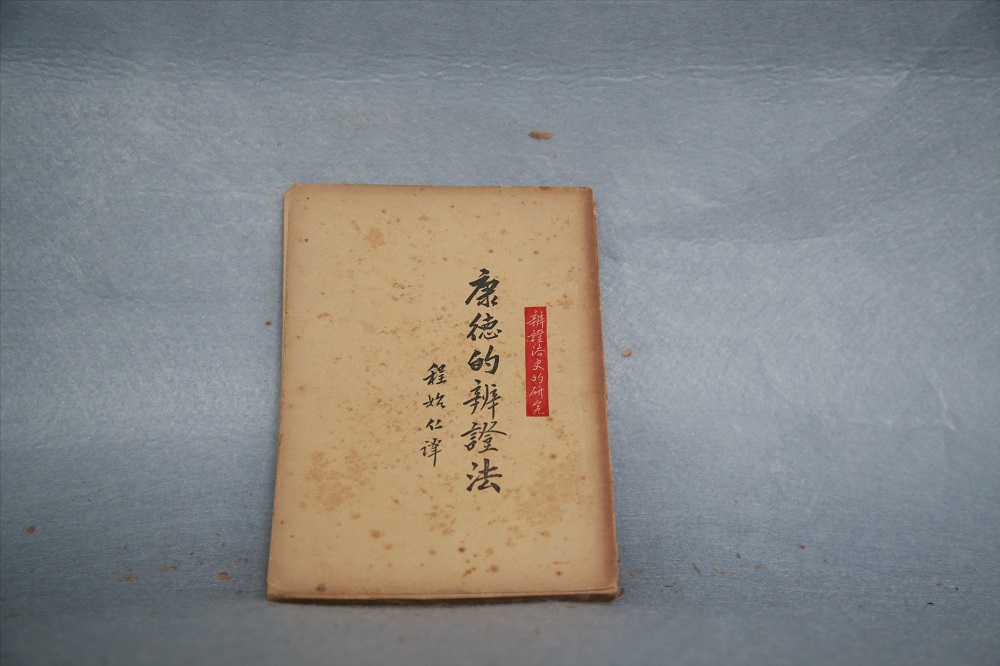 辨證法史的研究
康德的辨證法
程始仁譯